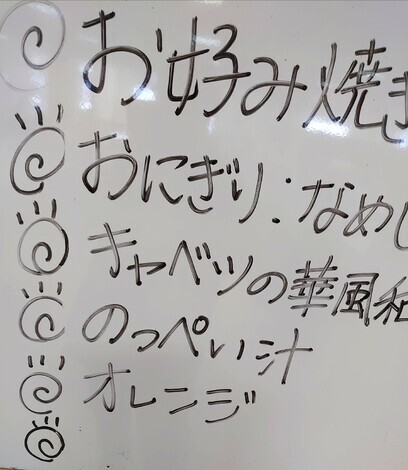 お好み焼き
おにぎり：なめし
キャベツの華風和
のっぺい汁
オレンジ